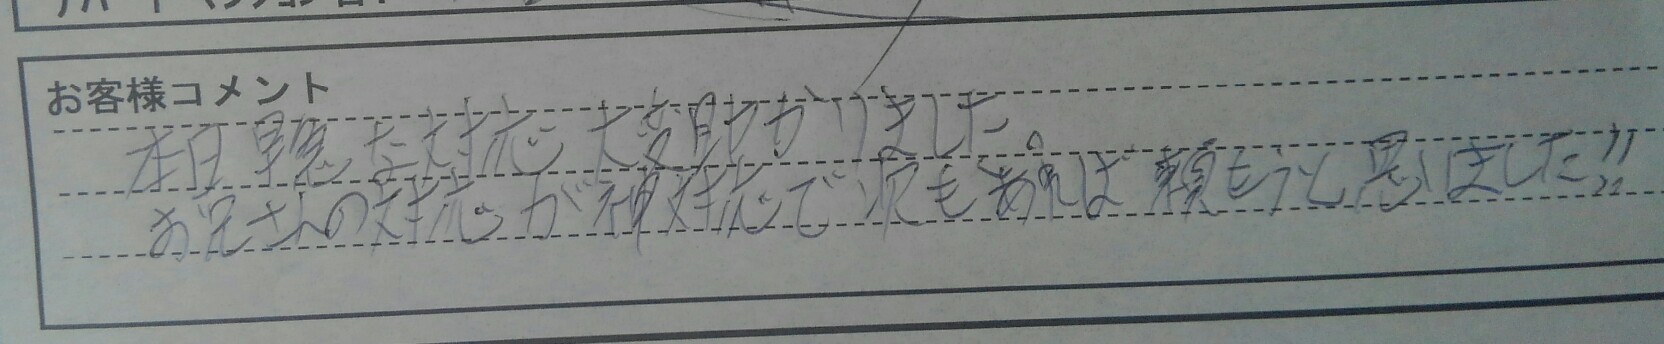 お客様コメント
本日早急な対応大変助かりました。
お兄さんの対応が神対応で次もあれば頼もうと思いました!!